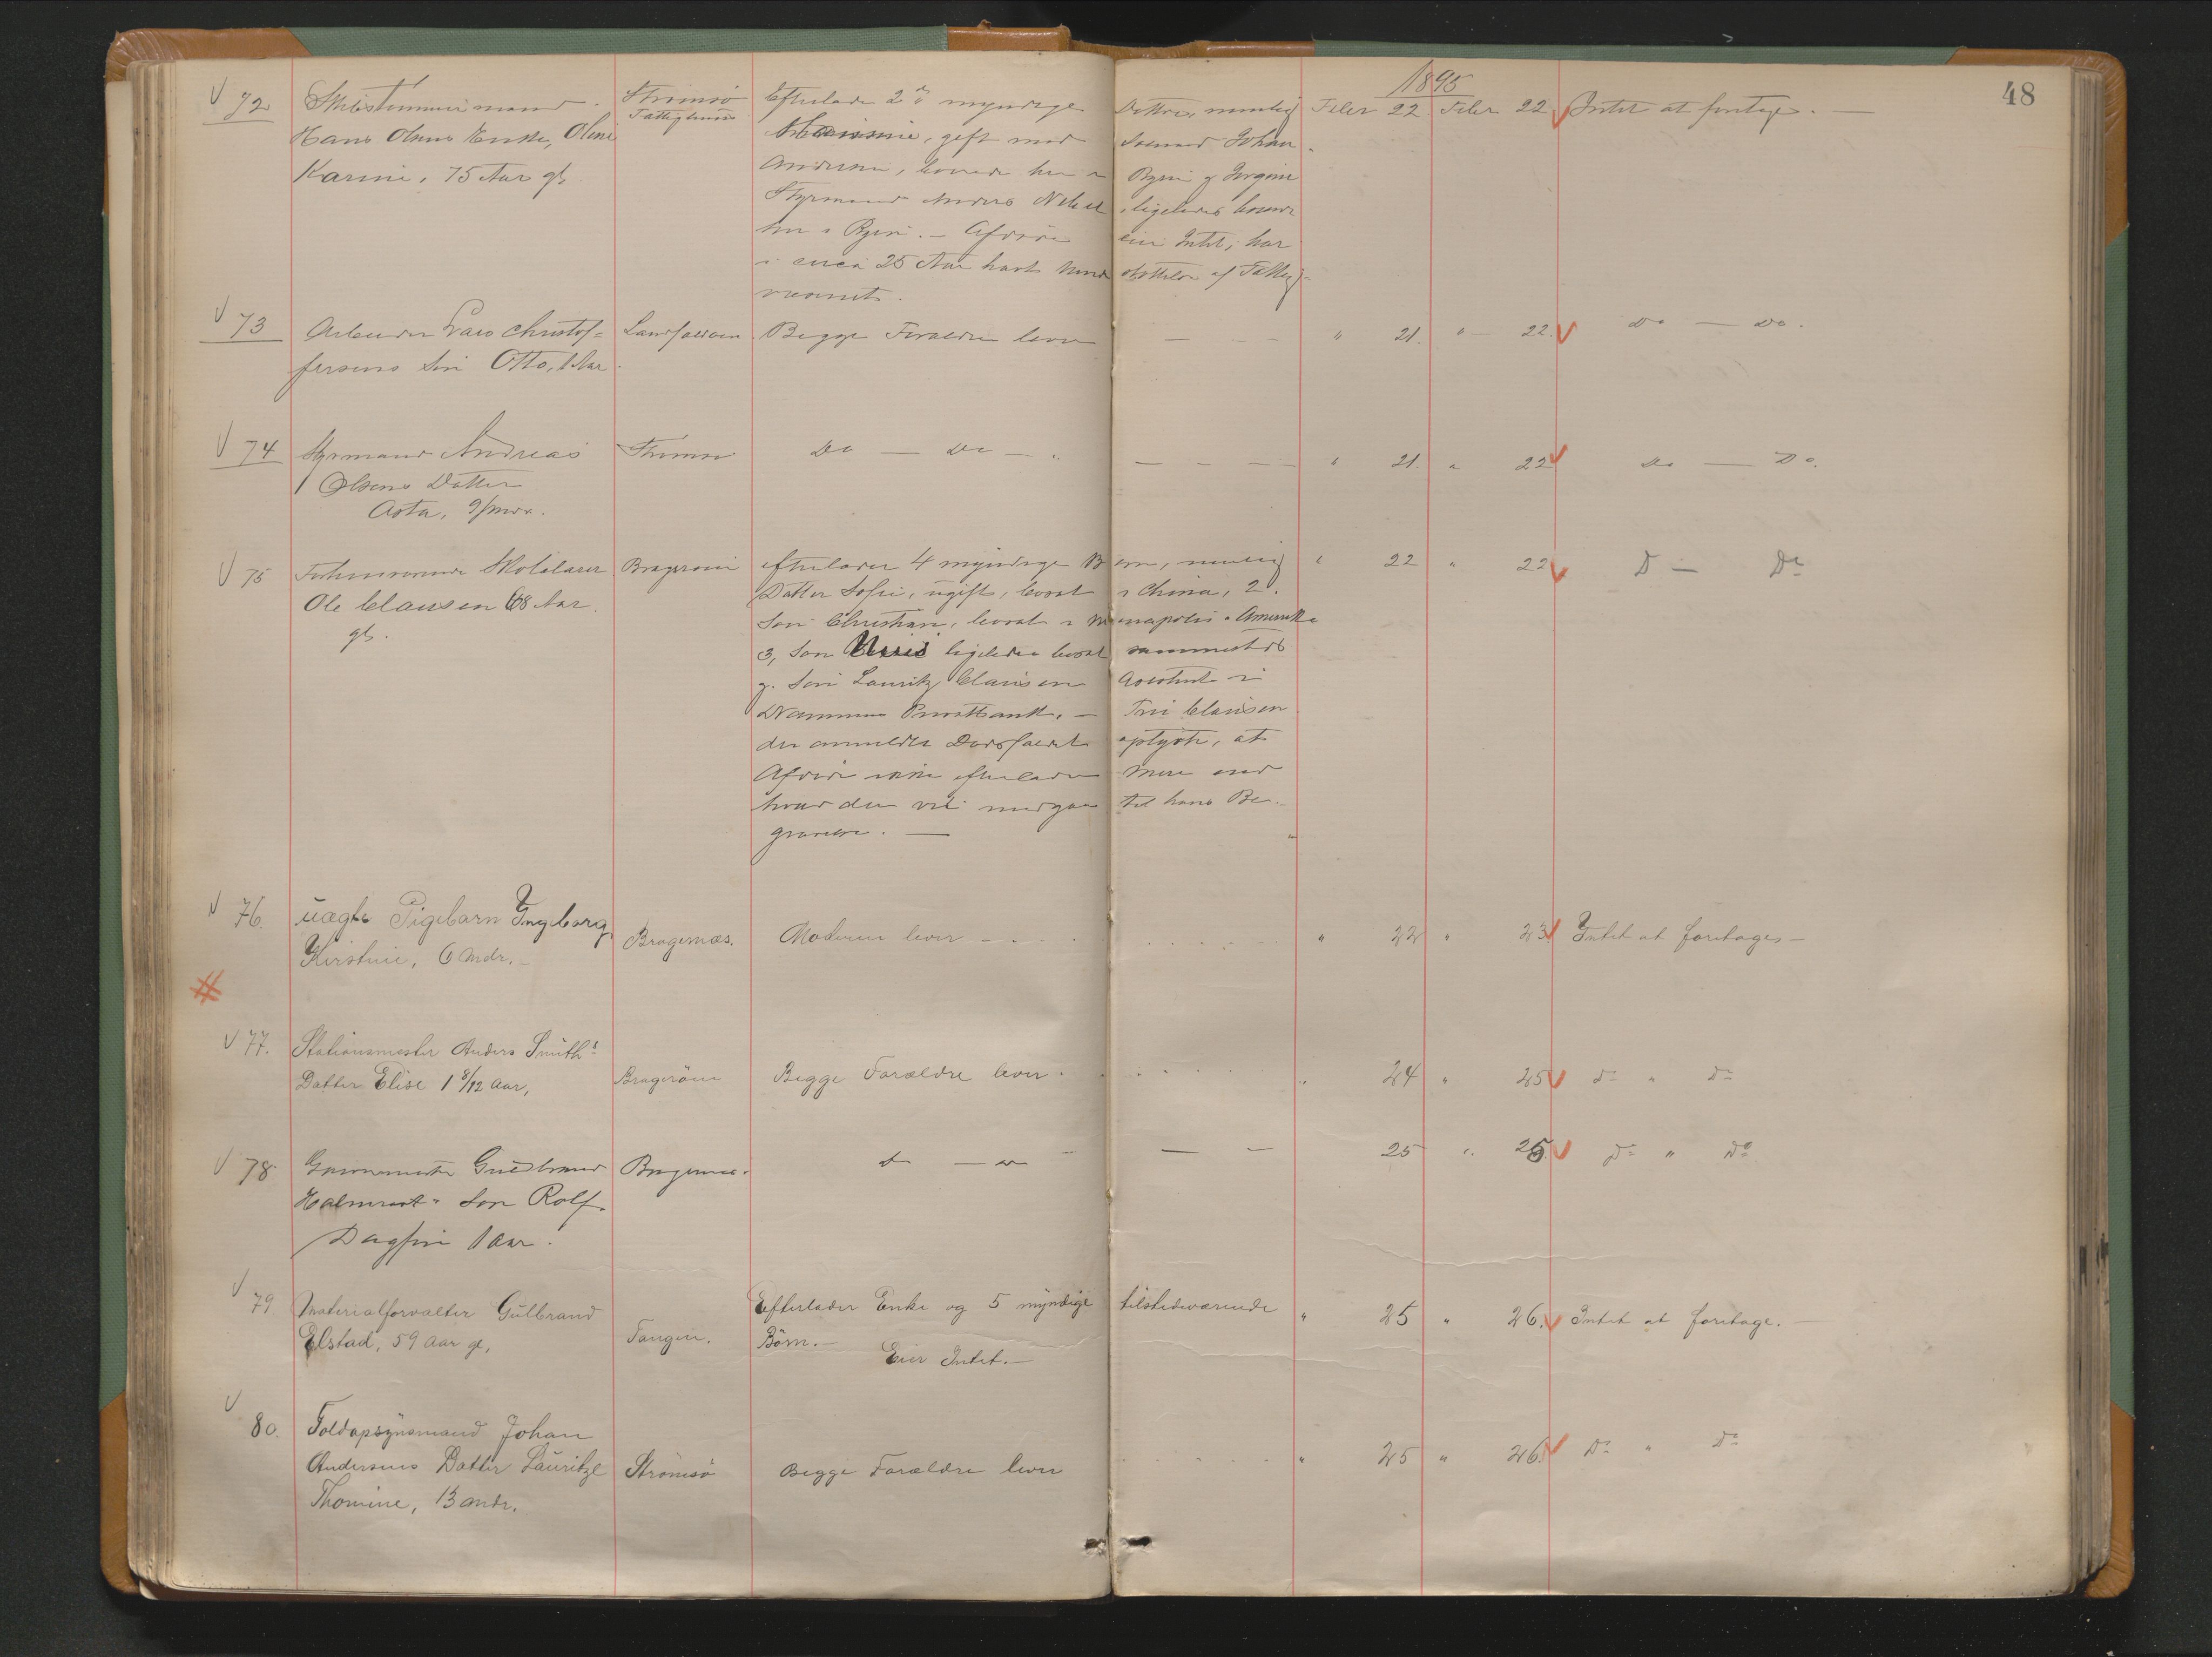 48
1895
72 Skibstømmermand Strømsø Efterlader 2de myndige Døttre, nemlig Febr 22 Febr 22 Intet at foretage. —
Hans Olsens Enke, Oline Fattighuus gift med Sømand Johan
Karine, 75 Aar gl. Andersen, boende her i Byen og Jørgine
Styrmand Anders ligeledes boende
her i Byen. — Afdøde eier Intet, har
i circa 25 Aar havt Understøttelse af Fattig-
væsenet.
73 Arbeider Lars Christof- Landfalløen Begge Forældre lever — - - " 21. " — 22. Do — Do.
fersens Søn Otto, 1 Aar.
74 Styrmand Andreas Strømsø Do — Do — " — — — " 21. " 22 Do — Do.
Olsens Datter
Asta, 9 mdr.
75 Forhenværende Skolelærer Bragerøen Efterlader 4 myndige Børn, nemlig " 22 " 22 D — Do
Ole Clausen 68 Aar Datter Sofie, ugift, bosat i China, 2.
gl. Søn Christian, bosat i Minapolis i Amerika
3, Søn ligeledes bosat sammesteds
og Søn Lauritz Clausen Assistent i
Drammens Privatbank. — Frue Clausen
der anmeldte Dødsfaldet oplyste, at
Afdøde ikke efterlader mere end
hvad der vil medgaa til hans Be-
gravelse. —
76. uægte Pigebarn Ingeborg
Kirstine, 6 Mdr. — Bragernæs. Moderen lever - . . . " 22 " 23 Intet at foretages —
#
77. Stationsmester Anders Smiths
Datter Elise 1 8/12 Aar, Bragerøen Begge Forældre lever . . . " 24 " 25 do " do
78. Guldbrand Bragernæs. do — do — — — 25 " 26. Do " Do
Halmrast's Søn Rolf
Dagfin 1 Aar.
79 Materialforvalter Gulbrand Efterlader Enke og 5 myndige tilstedeværende " 25 " 26. Intet at foretage. —
Elstad, 59 Aar gl, Tangen. Børn. —
Eier Intet. —
80. Toldopsynsmand Johan
Andersens Datter Lauritze Strømsø Begge Forældre lever . . . " 25 " 26 Do " Do
Thomine, 13 Mdr.